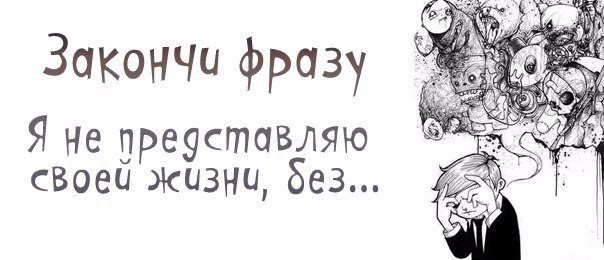 Закончи фразу
Я не представляю
своей жизни, без...